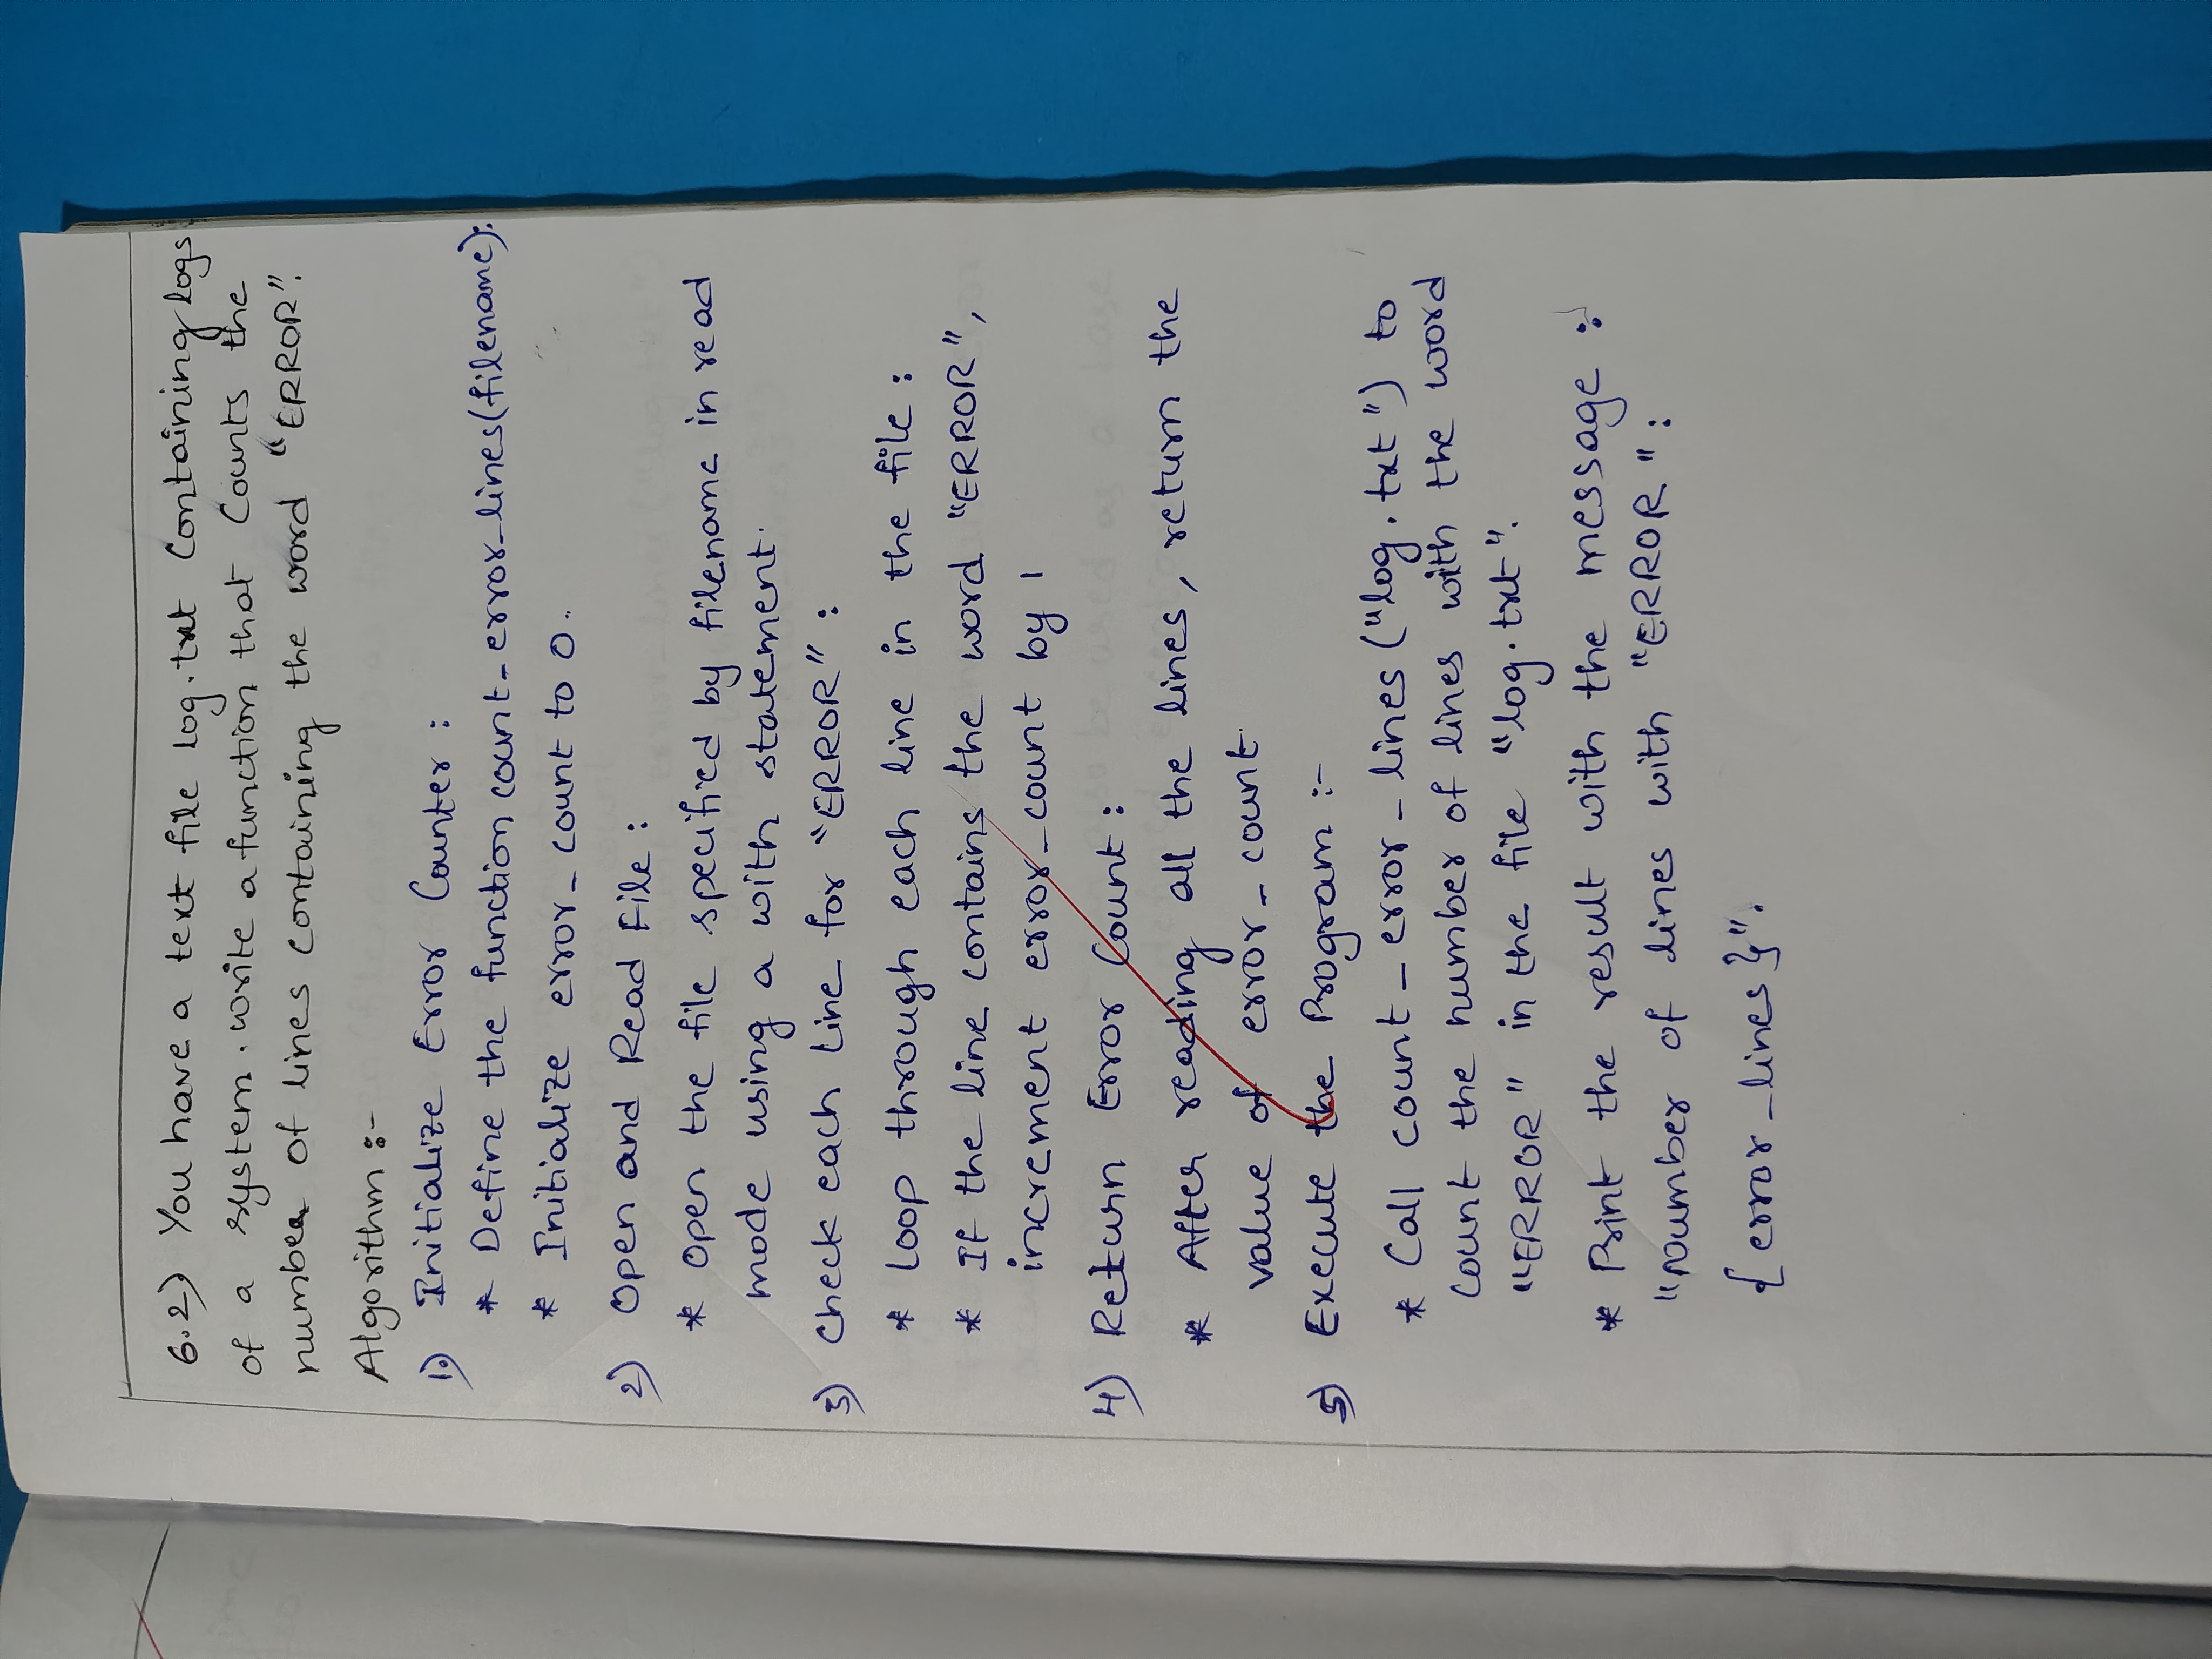 6.2) You have a text file log.txt Containing logs
of a system. write a function that Counts the
number of lines containing the word "ERROR".
Algorithm :-
1) Initialize Error Counter :
* Define the function count_error_lines(filename):
* Initialize error_count to 0.
2) Open and Read File :
* Open the file specified by filename in read
mode using a with statement.
3) Check each Line for "ERROR" :
* Loop through each line in the file :
* If the line contains the word "ERROR",
increment error_count by 1
4) Return Error Count :
* After reading all the lines, return the
value of error_count.
5) Execute the Program :-
* Call count_error_lines ("log.txt") to
count the number of lines with the word
"ERROR" in the file "log.txt".
* Print the result with the message :
"number of lines with "ERROR" :
{error_lines}".